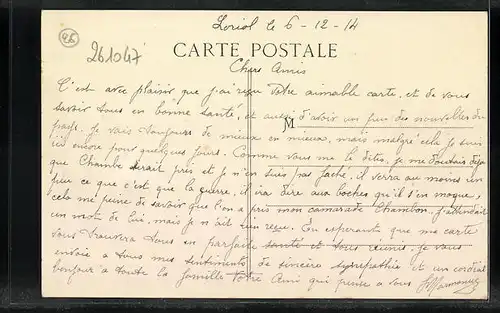 46
261047
Loriol le 6-12-14
CARTE POSTALE
Chers Amis
C'est avec plaisir que j'ai reçu votre aimable carte, et de vous
savoir tous en bonne santé, et aussi d'avoir un peu des nouvelles du
pays. Je vais toujours de mieux en mieux, mais malgré cela je suis
M
ici encore pour quelques jours. Comme vous me le dites, je me doutais déjà
que Chambe serait pris et je n'en suis pas faché, il verra au moins un
peu ce que c'est que la guerre, il ira dire aux boches qu'il s'en moque,
cela me peine de savoir que l'on a pris mon camarade Chambon. j'attendait
un mot de lui, mais je n'ait rien reçu. En esperant que ma carte
vous trouvera tous en parfaite santé et tous réunis, je vous
envoie a tous mes sentiments de sincère sympathie et un cordial
bonjour a toute la famille Votre Ami qui pense a vous